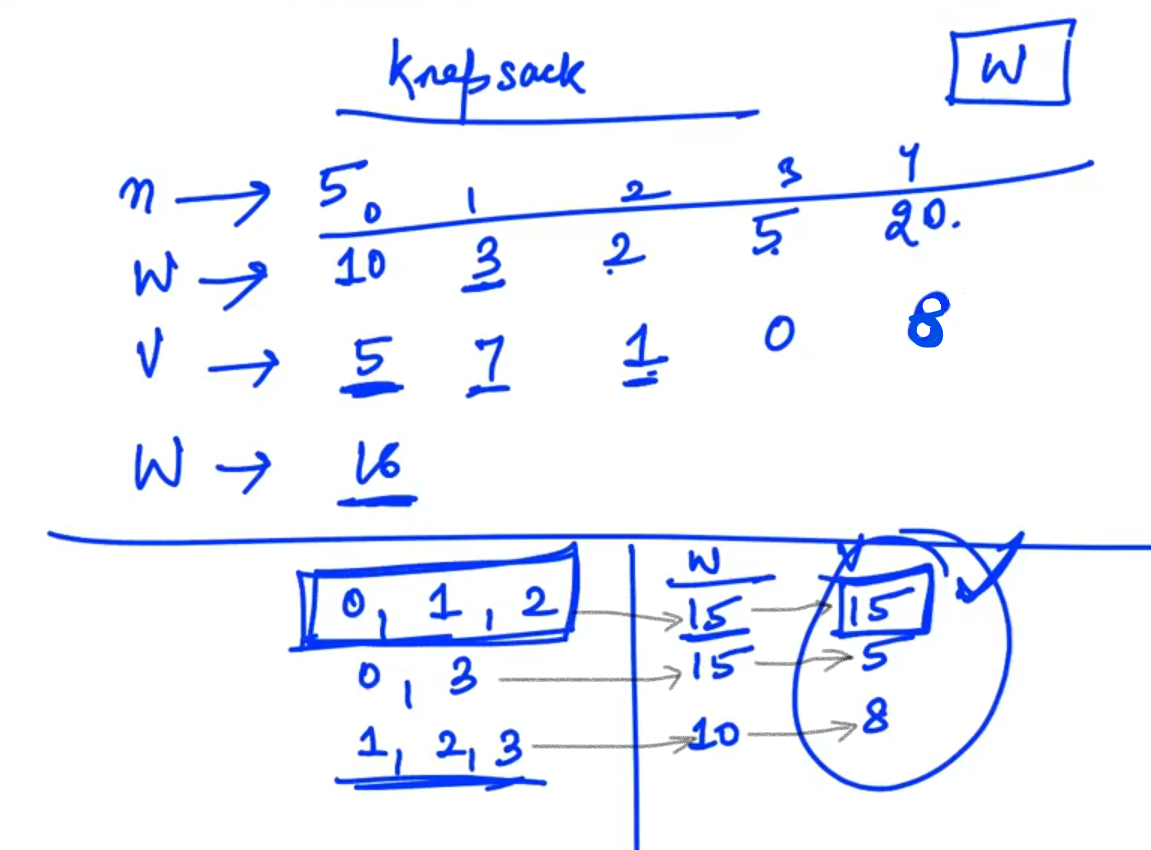 Knapsack W
n → 5
0 1 2 3 4
W → 10 3 2 5 20.
V → 5 7 1 0 8
W → 16
W V
0, 1, 2 → 15 → 15 ✓
0, 3 → 15 → 5
1, 2, 3 → 10 → 8